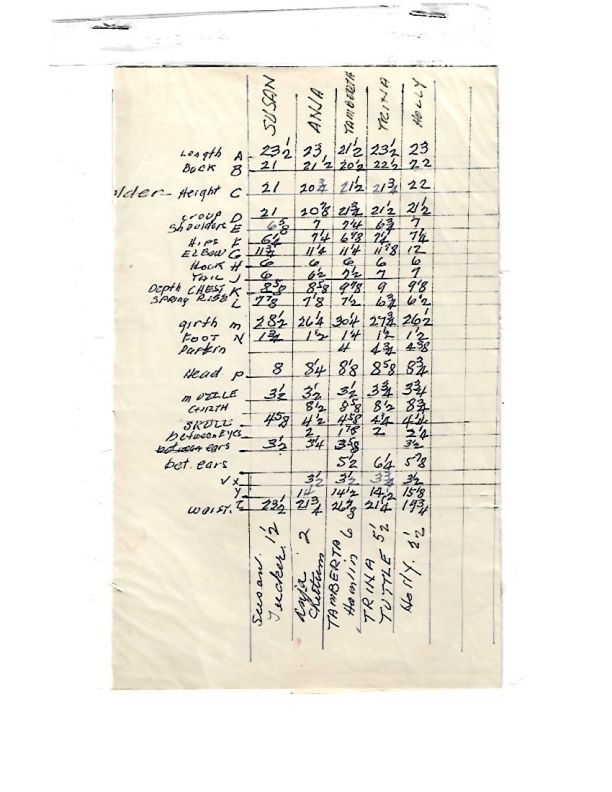 SUSAN ANJA TAMBERTA TRINA HOLLY
Length A 23½ 23 21½ 23½ 23
Back B 21 21½ 20½ 22½ 22
Height C 21 20¾ 21½ 21¾ 22
Croup D 21 20⅞ 21¾ 21½ 21½
Shoulders E 6⅝ 7 7¼ 6¾ 7
Hips F 6¼ 7¼ 6⅞ 7¼ 7¼
ELBOW G 11¾ 11¼ 11¼ 11⅞ 12
Hock H 6 6 6 6 6
TAIL J 6 6½ 7½ 7 7
Depth CHEST K 8⅝ 8⅝ 9⅛ 9 9⅛
SPRING RIBS L 7⅞ 7⅛ 7½ 6¾ 6½
girth m 28½ 26¼ 30¼ 27¾ 26½
FOOT N 1¾ 1½ 1¼ 1½ 1½
4 4¾ 4⅝
Head P 8 8¼ 8⅛ 8⅝ 8¾
muzzle 3½ 3½ 3½ 3¾ 3¾
GIRTH 8½ 8⅝ 8½ 8¾
SKULL 4⅝ 4½ 4⅝ 4¼ 4¼
between Eyes 2 1⅞ 2 2¼
between ears 3½ 3¼ 3⅝ 3½
bet. ears 5½ 6¼ 5⅞
V X 3½ 3½ 3¾ 3½
Y 14 14½ 14½ 15⅛
WAIST. Z 23½ 21¾ 26⅞ 21¼ 19¾
Susan. Tucker 1½
Anja 2
TAMBERTA Hamlin 6
TRINA TUTTLE 5½
Holly. 2½